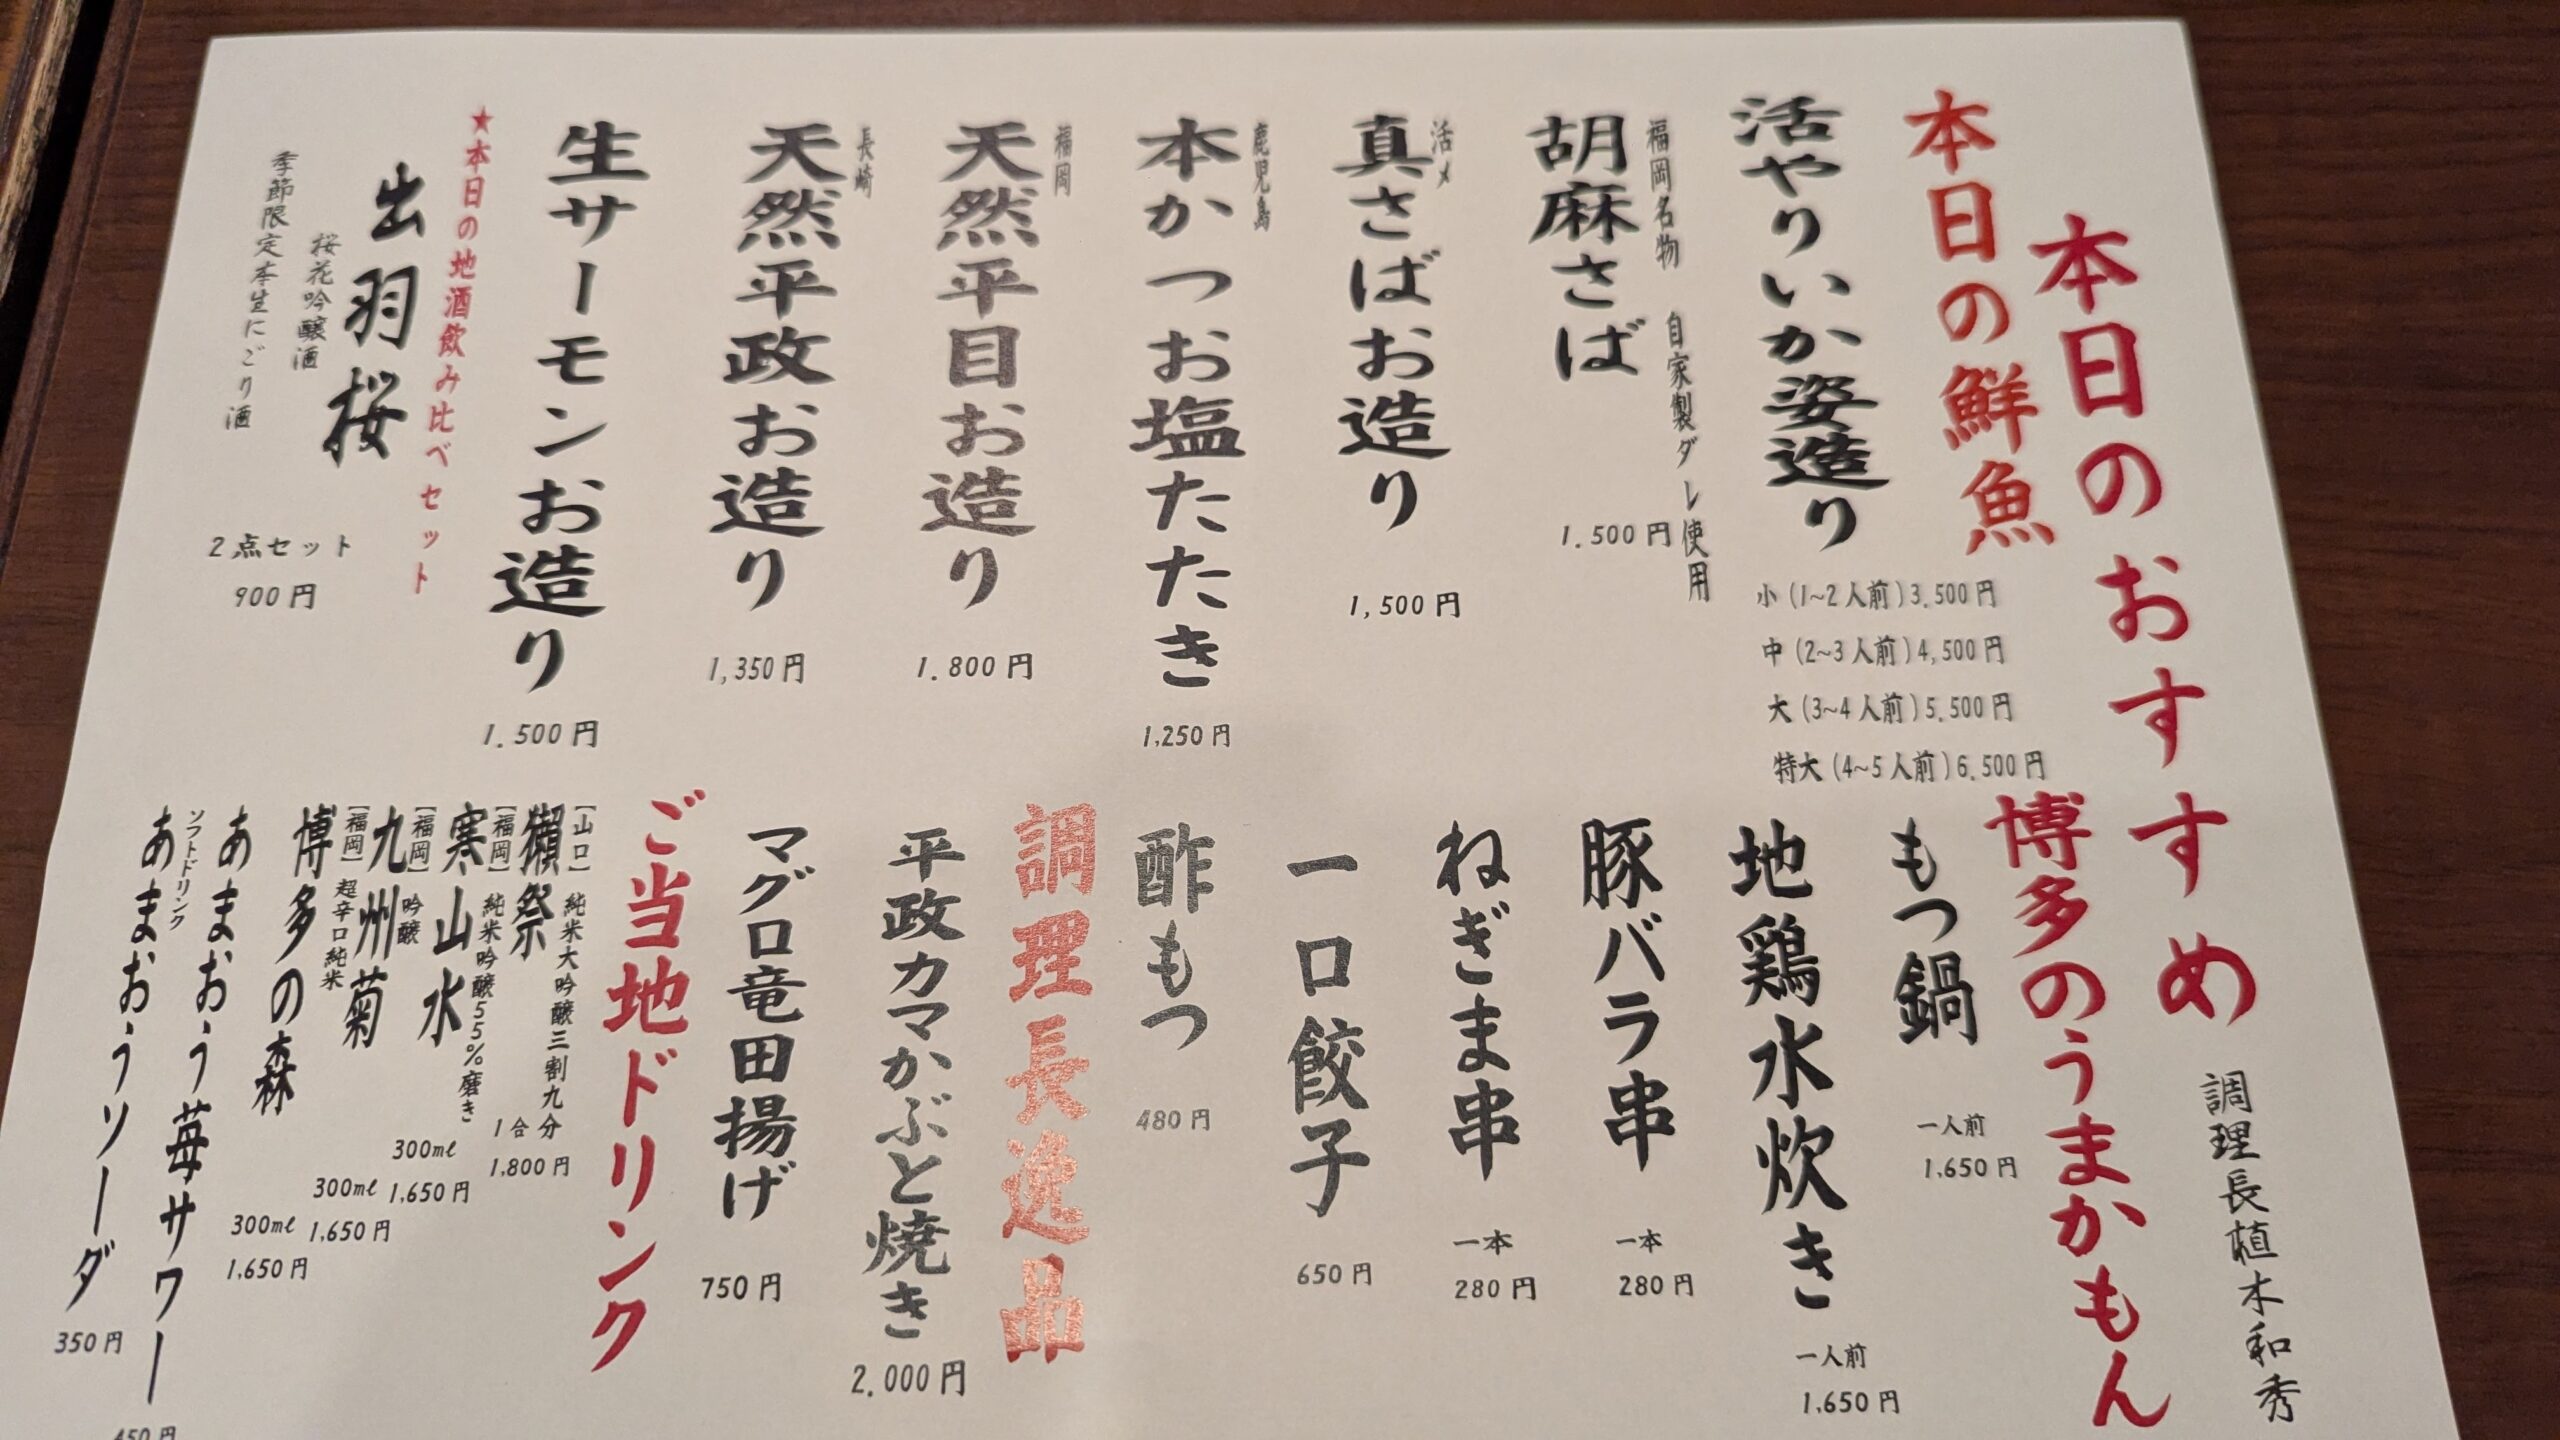 本日のおすすめ
調理長植木和秀
本日の鮮魚
活やりいか姿造り
小(1~2人前)3,500円
中(2~3人前)4,500円
大(3~4人前)5,500円
特大(4~5人前)6,500円
福岡名物 自家製ダレ使用
胡麻さば
1.500円
活〆
真さばお造り
1,500円
鹿児島
本かつお塩たたき
1,250円
福岡
天然平目お造り
1.800円
長崎
天然平政お造り
1,350円
生サーモンお造り
1.500円
★本日の地酒飲み比べセット
出羽桜
桜花吟醸酒
季節限定本生にごり酒
2点セット
900円
博多のうまかもん
もつ鍋
一人前
1,650円
地鶏水炊き
一人前
1,650円
豚バラ串
一本
280円
ねぎま串
一本
280円
一口餃子
650円
酢もつ
480円
調理長逸品
平政カマかぶと焼き
2.000円
マグロ竜田揚げ
750円
ご当地ドリンク
【山口】純米大吟醸三割九分
獺祭
1合
1,800円
【福岡】純米吟醸55%磨き
寒山水
300ml
1,650円
【福岡】吟醸
九州菊
300ml
1,650円
【福岡】超辛口純米
博多の森
300ml
1,650円
あまおう苺サワー
450円
ソフトドリンク
あまおうソーダ
350円